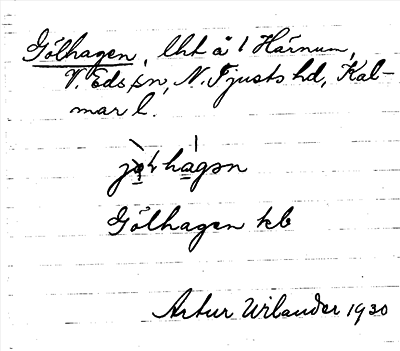 Gölhagen, lht å 1 Härnum,
V. Eds sn, N. Tjusts hd, Kal-
mar l.
hagən
Gölhagen kb
Artur Wilander 1930